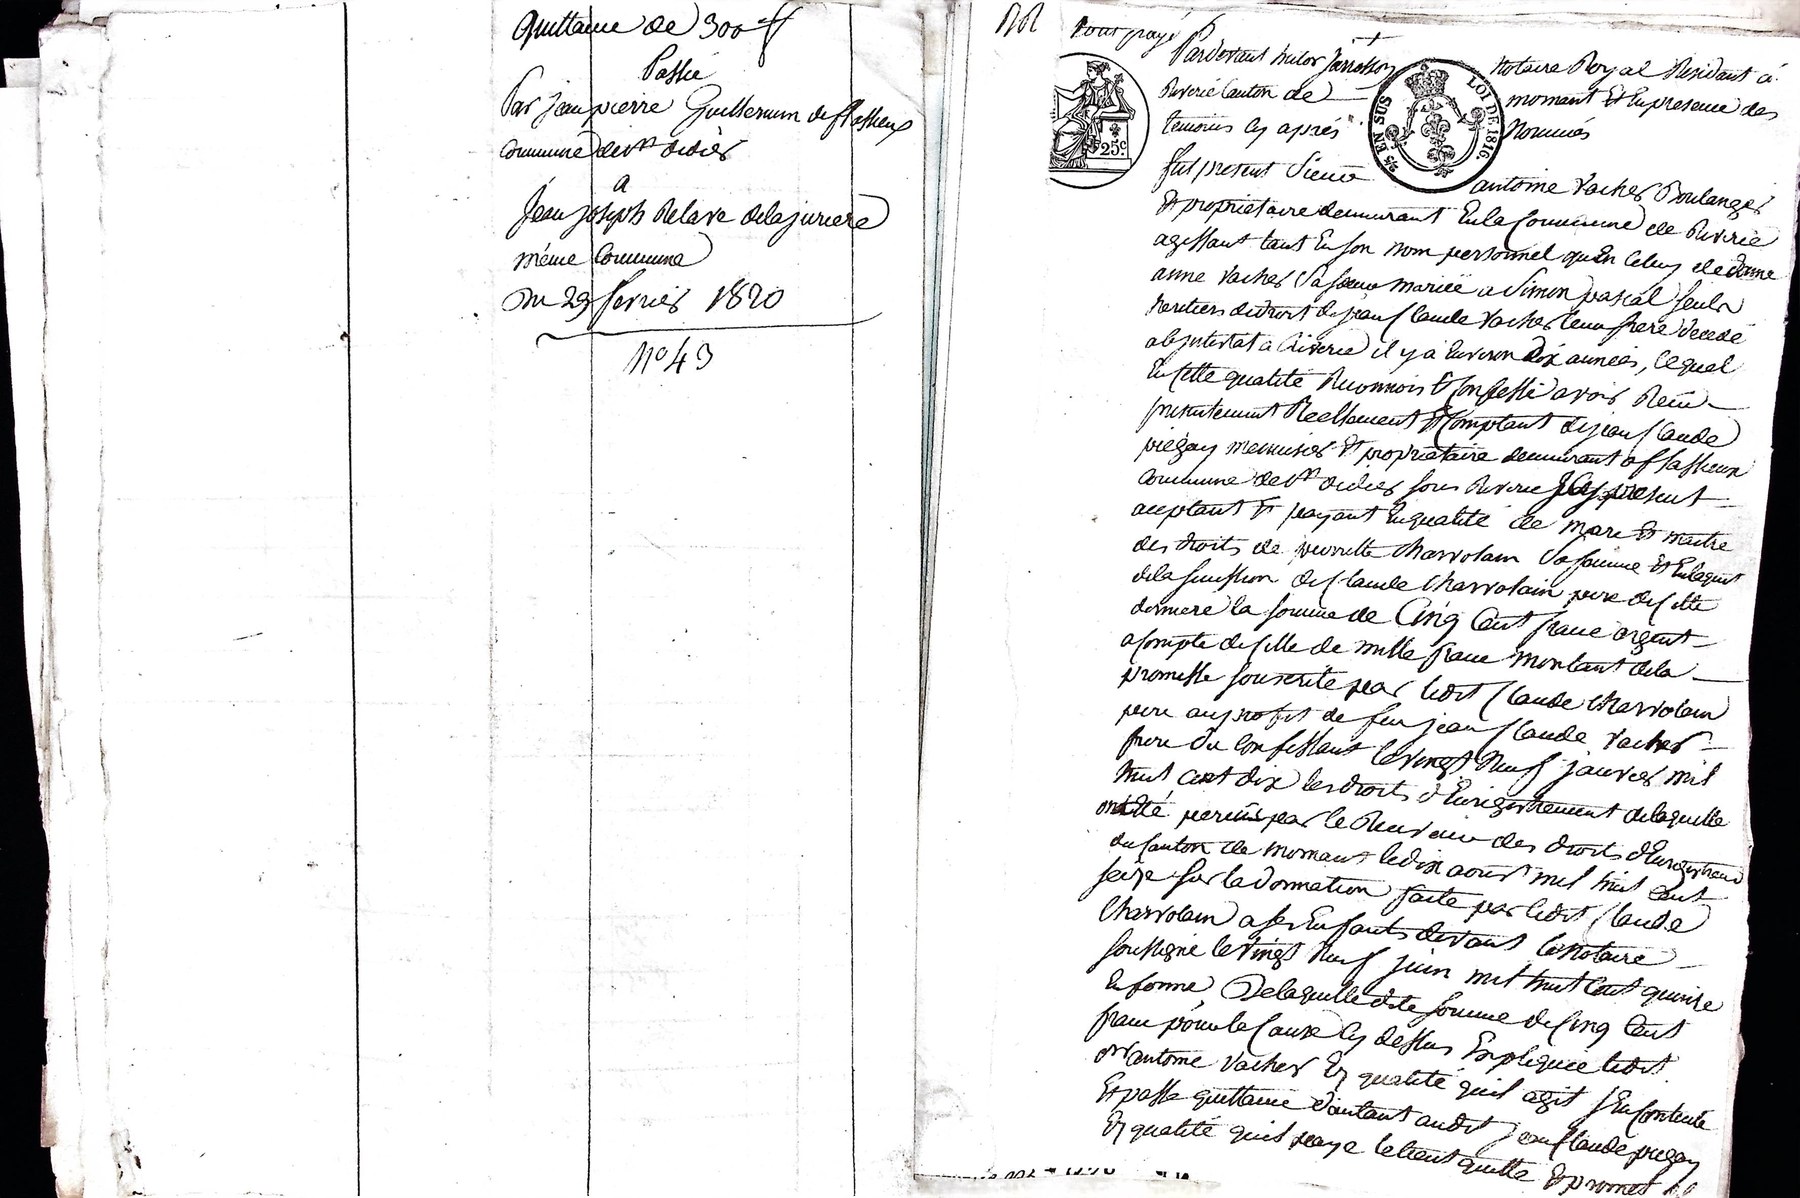 Quittance de 300 ff
Passée
Par Jean pierre Guillermin de flassieux
commune de st didier
a
Jean joseph Relave delajuriere
même Commune
Du 29 fevrier 1820
N° 43
pour payé
Pardevant Notaire Royal Residant à
Riverie Canton de mornant Et En presence des
temoins Cy aprés Nommés
25 c
25 EN SUS
LOI DE 1816.
fut present Sieur antoine Vacher Boulanger
Et propriétaire demeurant En la Commune de Riverie
agissant tant En son nom personnel qu'En Celuy de dame
anne Vacher Sa soeur mariée a Simon pascal seuls
heritiers de droit de jean Claude Vacher leur frere decedé
abintestat a Riverie il y a Environ dix années, lequel
En cette qualité Reconnois & Confesse avoir Reçu
presentement Reellement & Comptant de jean Claude
piégay menuisier & propriétaire demeurant a flassieux
Commune de st didier sous Riverie Cy present
acceptant & payant En qualité de mari & maitre
des droits de pierrette Charvolain Sa femme Et En l'acquit
de la succession de Claude Charvolain pere de cette
derniere la somme de Cinq Cent franc argent
a compte de celle de mille franc montant de la
promesse souscrite par ledit Claude Charvolain
pere au profit de feu jean Claude Vacher
frere du Confessant le vingt Neuf janvier mil
huit cent dix les droits d'Enregistrement de laquelle
ont Eté perçus par le Receveur des droits d'Enregistrement
du Canton de mornant le dix aout mil huit Cent
seize sur la donnation faite par ledit Claude
Charvolain a ses Enfants devant le Notaire
soussigné le Vingt Neuf juin mil huit Cent quinze
En forme, De laquelle dite somme de Cinq Cent
franc pour la Cause Cy dessus Expliquée ledit
sr antoine Vacher En qualité qu'il agit s'En Contente
Et passe quittance d'autant audit jean Claude piegay
En qualité qu'il paye le tient quitte Et promet